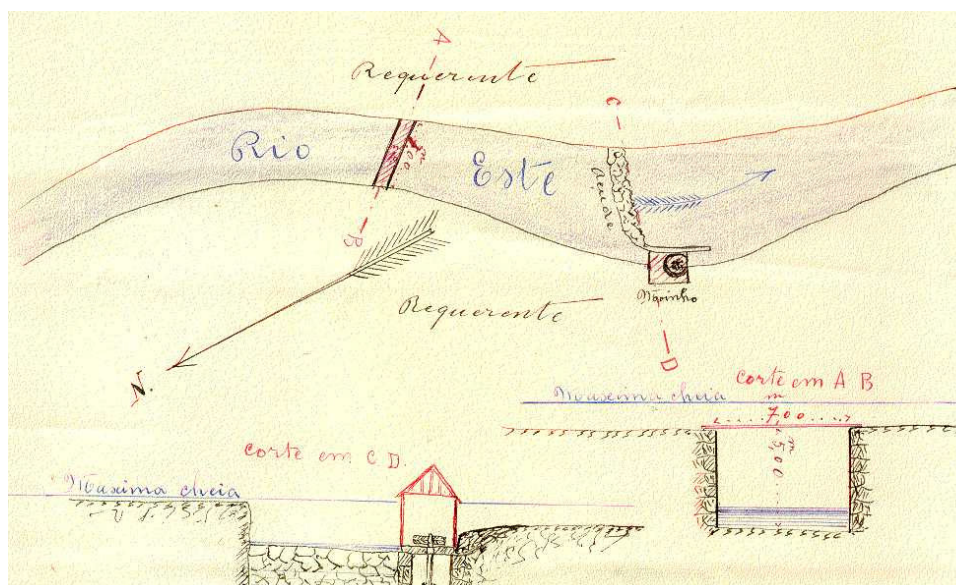 A
Requerente
C
Rio
Este
Açude
B
Requerente
Moinho
N.
D
corte em A B
Maxima cheia
m
7,00
m
5,00
corte em C D.
Maxima cheia